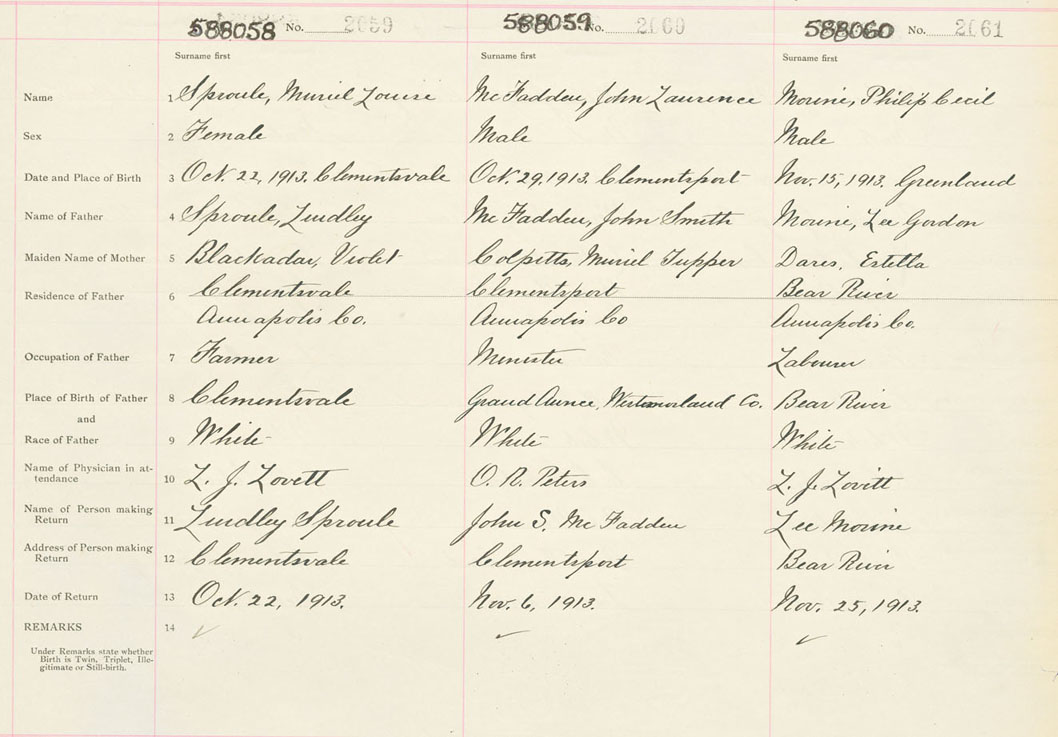 588058 No. 2059 588059 No. 2060 588060 No. 2061
Surname first Surname first Surname first
Name 1 Sproule, Muriel Louise McFadden, John Laurence Morine, Philip Cecil
Sex 2 Female Male Male
Date and Place of Birth 3 Oct. 22, 1913. Clementsvale Oct. 29, 1913. Clementsport Nov. 15, 1913. Greenland
Name of Father 4 Sproule, Lindley McFadden, John Smith Morine, Lee Gordon
Maiden Name of Mother 5 Blackadar, Violet Colpitts, Muriel Tupper Dares, Estella
Residence of Father 6 Clementsvale Clementsport Bear River
Annapolis Co. Annapolis Co Annapolis Co.
Occupation of Father 7 Farmer Minister Labourer
Place of Birth of Father 8 Clementsvale Grand Aunce, Westmorland Co. Bear River
and
Race of Father 9 White White White
Name of Physician in at-
tendance 10 L. J. Lovett O. R. Peters L. J. Lovitt
Name of Person making
Return 11 Lindley Sproule John S. McFadden Lee Morine
Address of Person making
Return 12 Clementsvale Clementsport Bear River
Date of Return 13 Oct. 22, 1913. Nov. 6, 1913. Nov. 25, 1913.
REMARKS 14 ✓ ✓ ✓
Under Remarks state whether
Birth is Twin, Triplet, Ille-
gitimate or Still-birth.